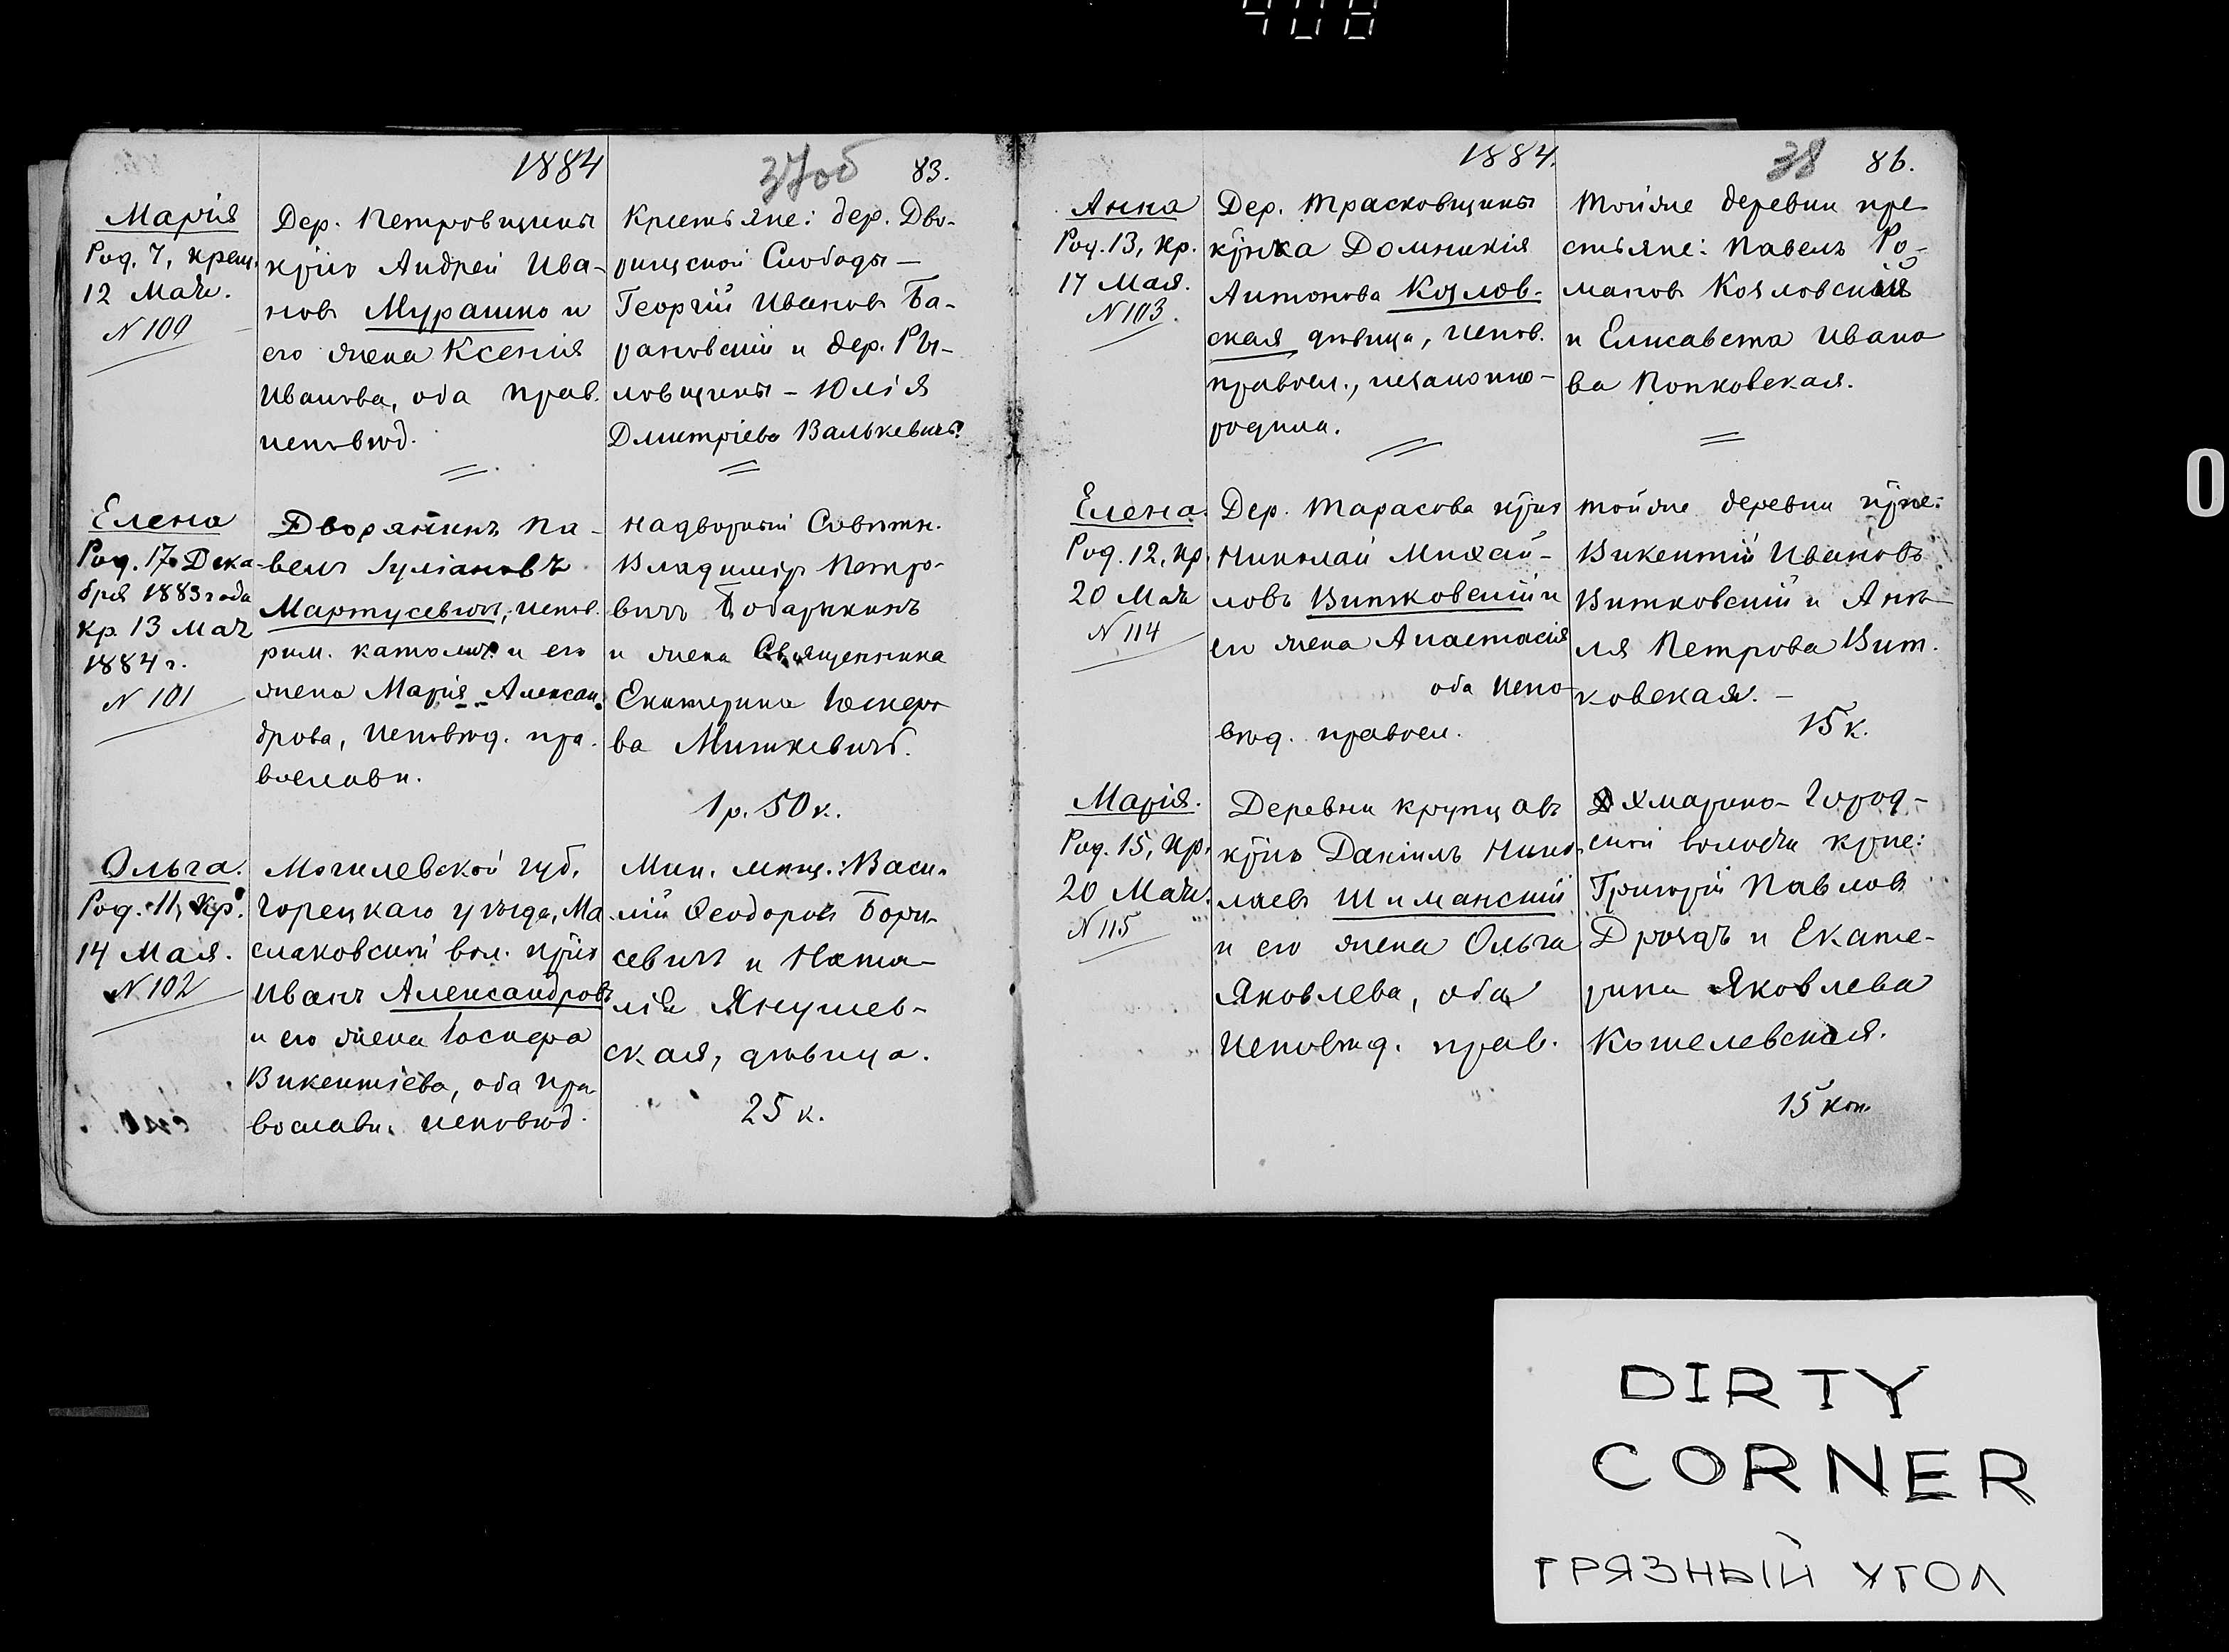 408
1884
37об
83.
Марія
Род. 7, крещ.
12 Мая.
N 109
Дер. Петровщины
крѣнъ Андрей Ива-
новъ Мурашко и
его жена Ксенія
Иванова, оба прав.
исповѣд.
Крестьяне: дер. Дво-
рищской Слободы —
Георгій Ивановъ Ба-
рановскій и дер. Ры-
ловщины - Юлія
Дмитріева Валькевичъ.
Елена
Род. 17 Дека-
бря 1883 года
кр. 13 Мая
1884 г.
N 101
Дворянинъ Па-
велъ Іуліановъ
Мартусевичъ, испов.
рим. катол. и его
жена Марія Алексан-
дрова, исповѣд. пра-
вославн.
Надворный Совѣтн.
Владиміръ Петро-
вичъ Бобарыкинъ
и жена Священника
Екатерина
ва Мицкевичъ.
1 р. 50 к.
Ольга.
Род. 11, кр.
14 Мая.
N 102
Могилевской губ.
Горецкаго уѣзда, Ма
слаковской вол. крѣнъ
Иванъ Александровъ
и его жена
Викентіева, оба пра-
вославн. исповѣд.
Мин. мѣщ.: Васи-
лій Ѳеодоровъ Бори-
севичъ и Ната-
лія Янушев-
ская, дѣвица.
25 к.
1884.
38
86.
Анна
Род. 13, кр.
17 Мая.
N 103.
Дер. Трасковщины
крѣнка Домникія
Антонова Козлов-
ская дѣвица, испов.
правосл., незаконно-
родила.
Тойже деревни кре-
стьяне: Павелъ Ро-
мановъ Козловскій
и Елисавета Ивано
ва Попковская.
Елена.
Род. 12, кр.
20 Мая
N 114
Дер. Тарасова крѣнъ
Николай Михай-
ловъ Витковскій и
его жена Анастасія
оба испо-
вѣд. правосл.
Тойже деревни крѣне:
Викентій Ивановъ
Витковскій и Анэ-
ля Петрова Вит-
ковская. —
15 к.
Марія.
Род. 15, кр.
20 Мая.
N 115
Деревни Крупцовъ
крѣнъ Даніилъ Нико-
лаевъ Шиманскій
и его жена Ольга
Яковлева, оба
исповѣд. прав.
Хмарино-Город-
ской волости крѣне:
Григорій Павловъ
Дроздъ и Екате-
рина Яковлева
Кошелевская.
15 коп.
0
DIRTY
CORNER
ГРЯЗНЫЙ УГОЛ